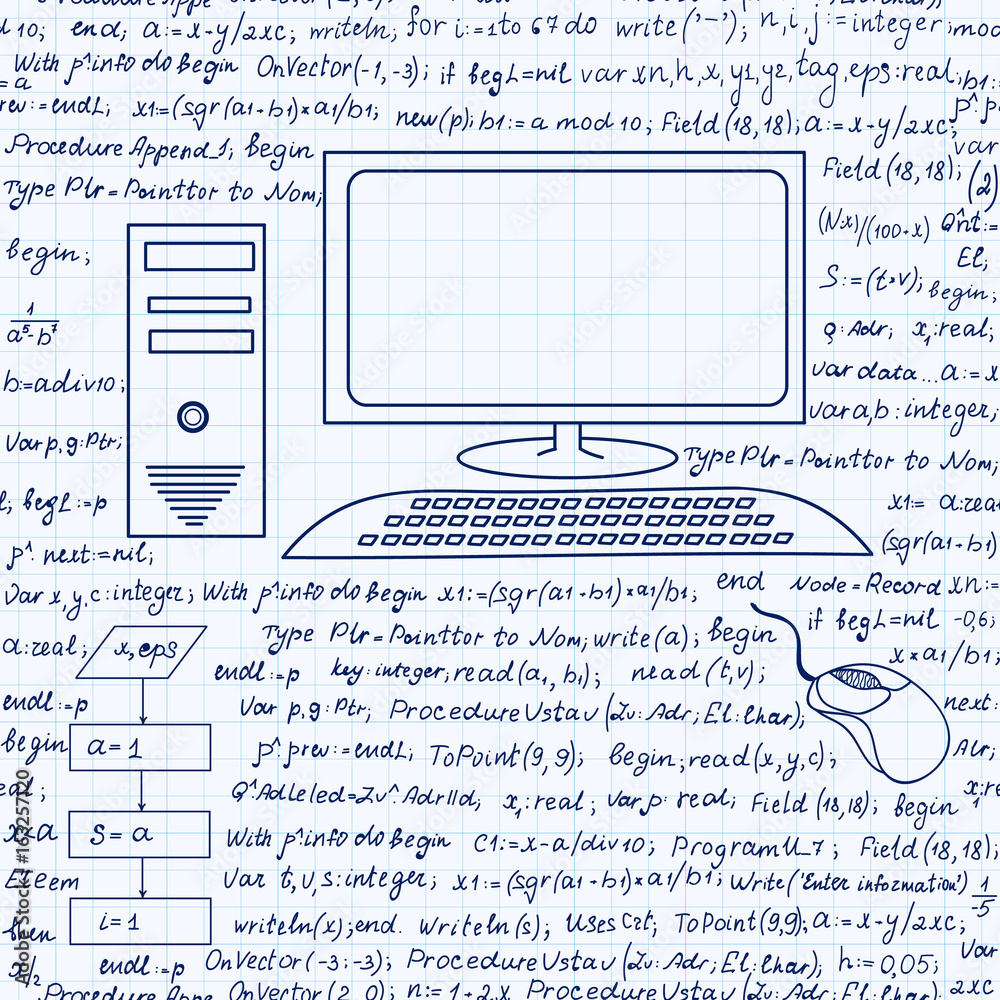 10; end; a:=x-y/2xc; writeln; for i:=1to 67 do write('-'); n,i,j:=integer; mod
With p^.info do begin OnVector(-1,-3); if begL=nil var xn,h,x,y1,y2,tag,eps:real; b1:=
=a
rev:=endL; x1:=(sgr(a1-b1)*a1/b1; new(p); b1:=a mod 10; Field(18,18); a:=x-y/2xc;
Procedure Append_1; begin
var
Type Plr=Pointtor to Nom;
Field(18,18);
(2)
(N·x)/(100·x) Q^nt:=
begin;
El;
S:=(t·v); begin;
1
a⁵-b⁷
Q:Adr; x₁:real;
b:=adiv10;
var data...a:=x
var a,b:integer;
Var p,g:Ptr;
Type Plr=Pointtor to Nom;
begL:=p
x1:= a:real
p^. next:=nil;
(sgr(a1-b1)
Var x,y,c:integer; With p^.info do begin x1:=(sgr(a1-b1)*a1/b1; end Node=Record xn:=
if begL=nil -0,6;
a:real; x,eps Type Plr=Pointtor to Nom; write(a); begin
x*a1/b1;
endl:=p key:integer; read(a₁,b₁); read(t,v);
endl:=p Var p,g:Ptr; ProcedureUstav(Zv:Adr;El:Char); next:
begin a=1 p^.prev:=endL; ToPoint(9,9); begin; read(x,y,c);
Q^AdLeled=Zv^AdrIId; x₁:real; Var p:real; Field(18,18); begin
x-a S=a With p^.info do begin C1:=x-a/div10; ProgramU_7; Field(18,18);
Var t,v,s:integer; x1:=(sgr(a1-b1)*a1/b1; Write('Enter information') 1
-5
i=1 writeln(x);end. Writeln(s); Uses Crt; ToPoint(9,9); a:=x-y/2xc;
Var
endl:=p OnVector(-3;-3); ProcedureUstav(Zv:Adr;El:Char); h:=0,05;
Procedure Appe OnVector(2, 0); n:=1+2.x ProcedureUstav(Zv:Adr;El:Char); 2xc
Adobe Stock | #163257120